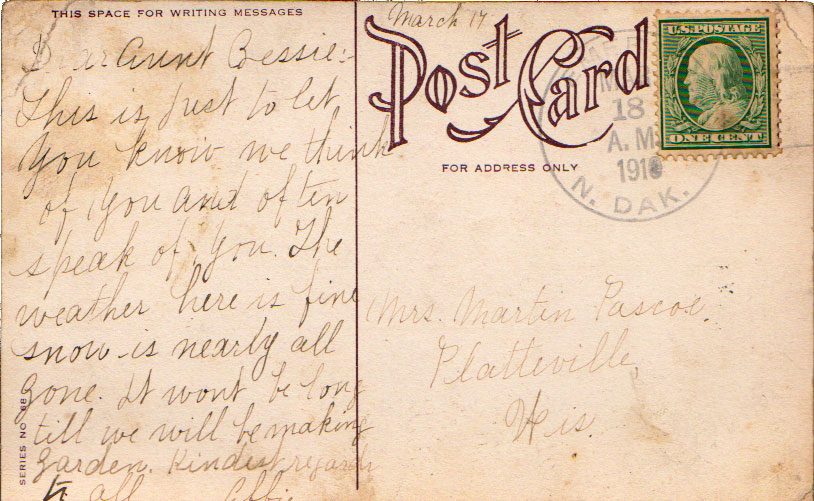 THIS SPACE FOR WRITING MESSAGES
Dear Aunt Bessie:-
This is just to let
you know we think
of you and often
speak of you. The
weather here is fine
snow is nearly all
gone. It wont be long
till we will be making
garden. Kindest regards
to all Effie
SERIES NO
March 17
Post Card
FOR ADDRESS ONLY
18
A.M.
1910
N. DAK.
U.S. POSTAGE
ONE CENT
Mrs. Martin Pascoe,
Platteville
Wis.